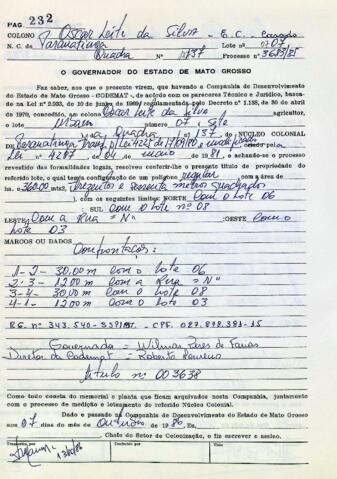 PAG. 232
COLONO Oscar Leite da Silva - E.C. Casado
N. C. de Paranatinga Lote nº 07
Quadra Nº 137 Processo nº 3683/85
O GOVERNADOR DO ESTADO DE MATO GROSSO
Faz saber, aos que o presente virem, que havendo a Companhia de Desenvolvimento
do Estado de Mato Grosso - CODEMAT -, de acôrdo com os pareceres Técnico e Jurídico, basea-
do na Lei nº 2.933, de 10 de junho de 1969 regulamentada pelo Decreto nº 1.138, de 30 de abril
de 1970, concedido, em colono Oscar Leite da Silva agricultor, o
lote urbano número 07, Sete
na Quadra nº 137, do NÚCLEO COLONIAL
de Paranatinga, criado pela
Lei nº 4287 de maio de 1981, e achando-se o processo
revestido das formalidades legais, resolveu conferir-lhe o presente título de propriedade do
referido lote, o qual tem a configuração de um polígono regular com a área de
ha. 360,00 mts2, Trezentos e sessenta metros quadrados
), com os seguintes limites: NORTE Com o Lote 06
; SUL Com o Lote nº 08
LESTE Com a Rua "N" ; OESTE Com o
Lote 03
MARCOS OU DADOS
Confrontações:
1-2- 30,00 m com o Lote 06
2-3- 12,00 m com a Rua "N"
3-4- 30,00 m com o Lote 08
4-1- 12,00 m com o Lote 03
Governador = Wilmar Peres de Farias
Diretor da Codemat = Roberto
Titulo nº 003638
Como tudo consta do memorial e planta que ficam arquivados nesta Companhia, juntamente
com o processo de medição e loteamento do referido Núcleo Colonial.
Dado e passado na Companhia de Desenvolvimento do Estado de Mato Grosso
aos 07 dias do mês de Outubro de 1986. Eu,
Chefe do Setor de Colonização, o fiz escrever e assino.
Transcrito por
Conferido por
Visto